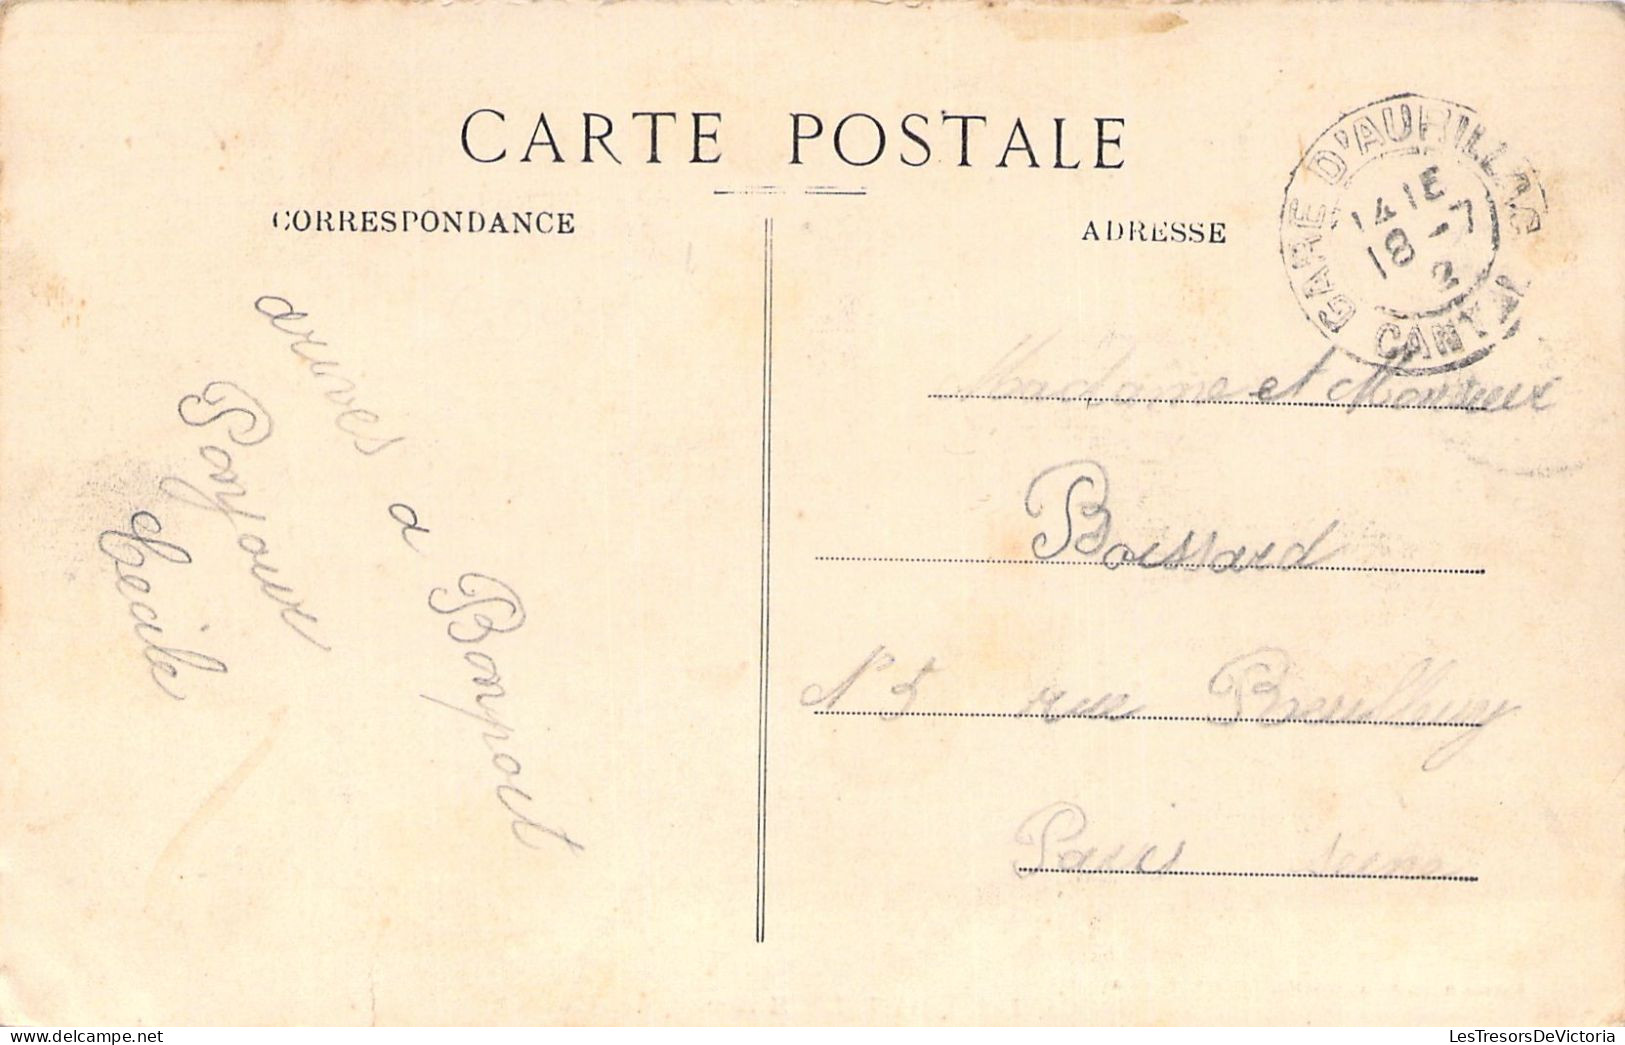 CARTE POSTALE
CORRESPONDANCE
ADRESSE
GARE D'AURILLAC
14 15
18 - 7
CANTAL
arrives a Bonport
Bonjour
Cecile
Madame et Monsieur
Boissard
N 5 rue
Paris Seine
LesTresorsDeVictoria